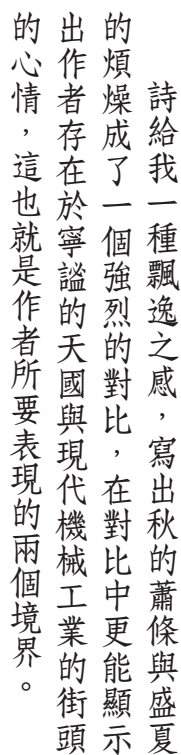 詩給我一種飄逸之感，寫出秋的蕭條與盛夏
的煩燥成了一個強烈的對比，在對比中更能顯示
出作者存在於寧謐的天國與現代機械工業的街頭
的心情，這也就是作者所要表現的兩個境界。